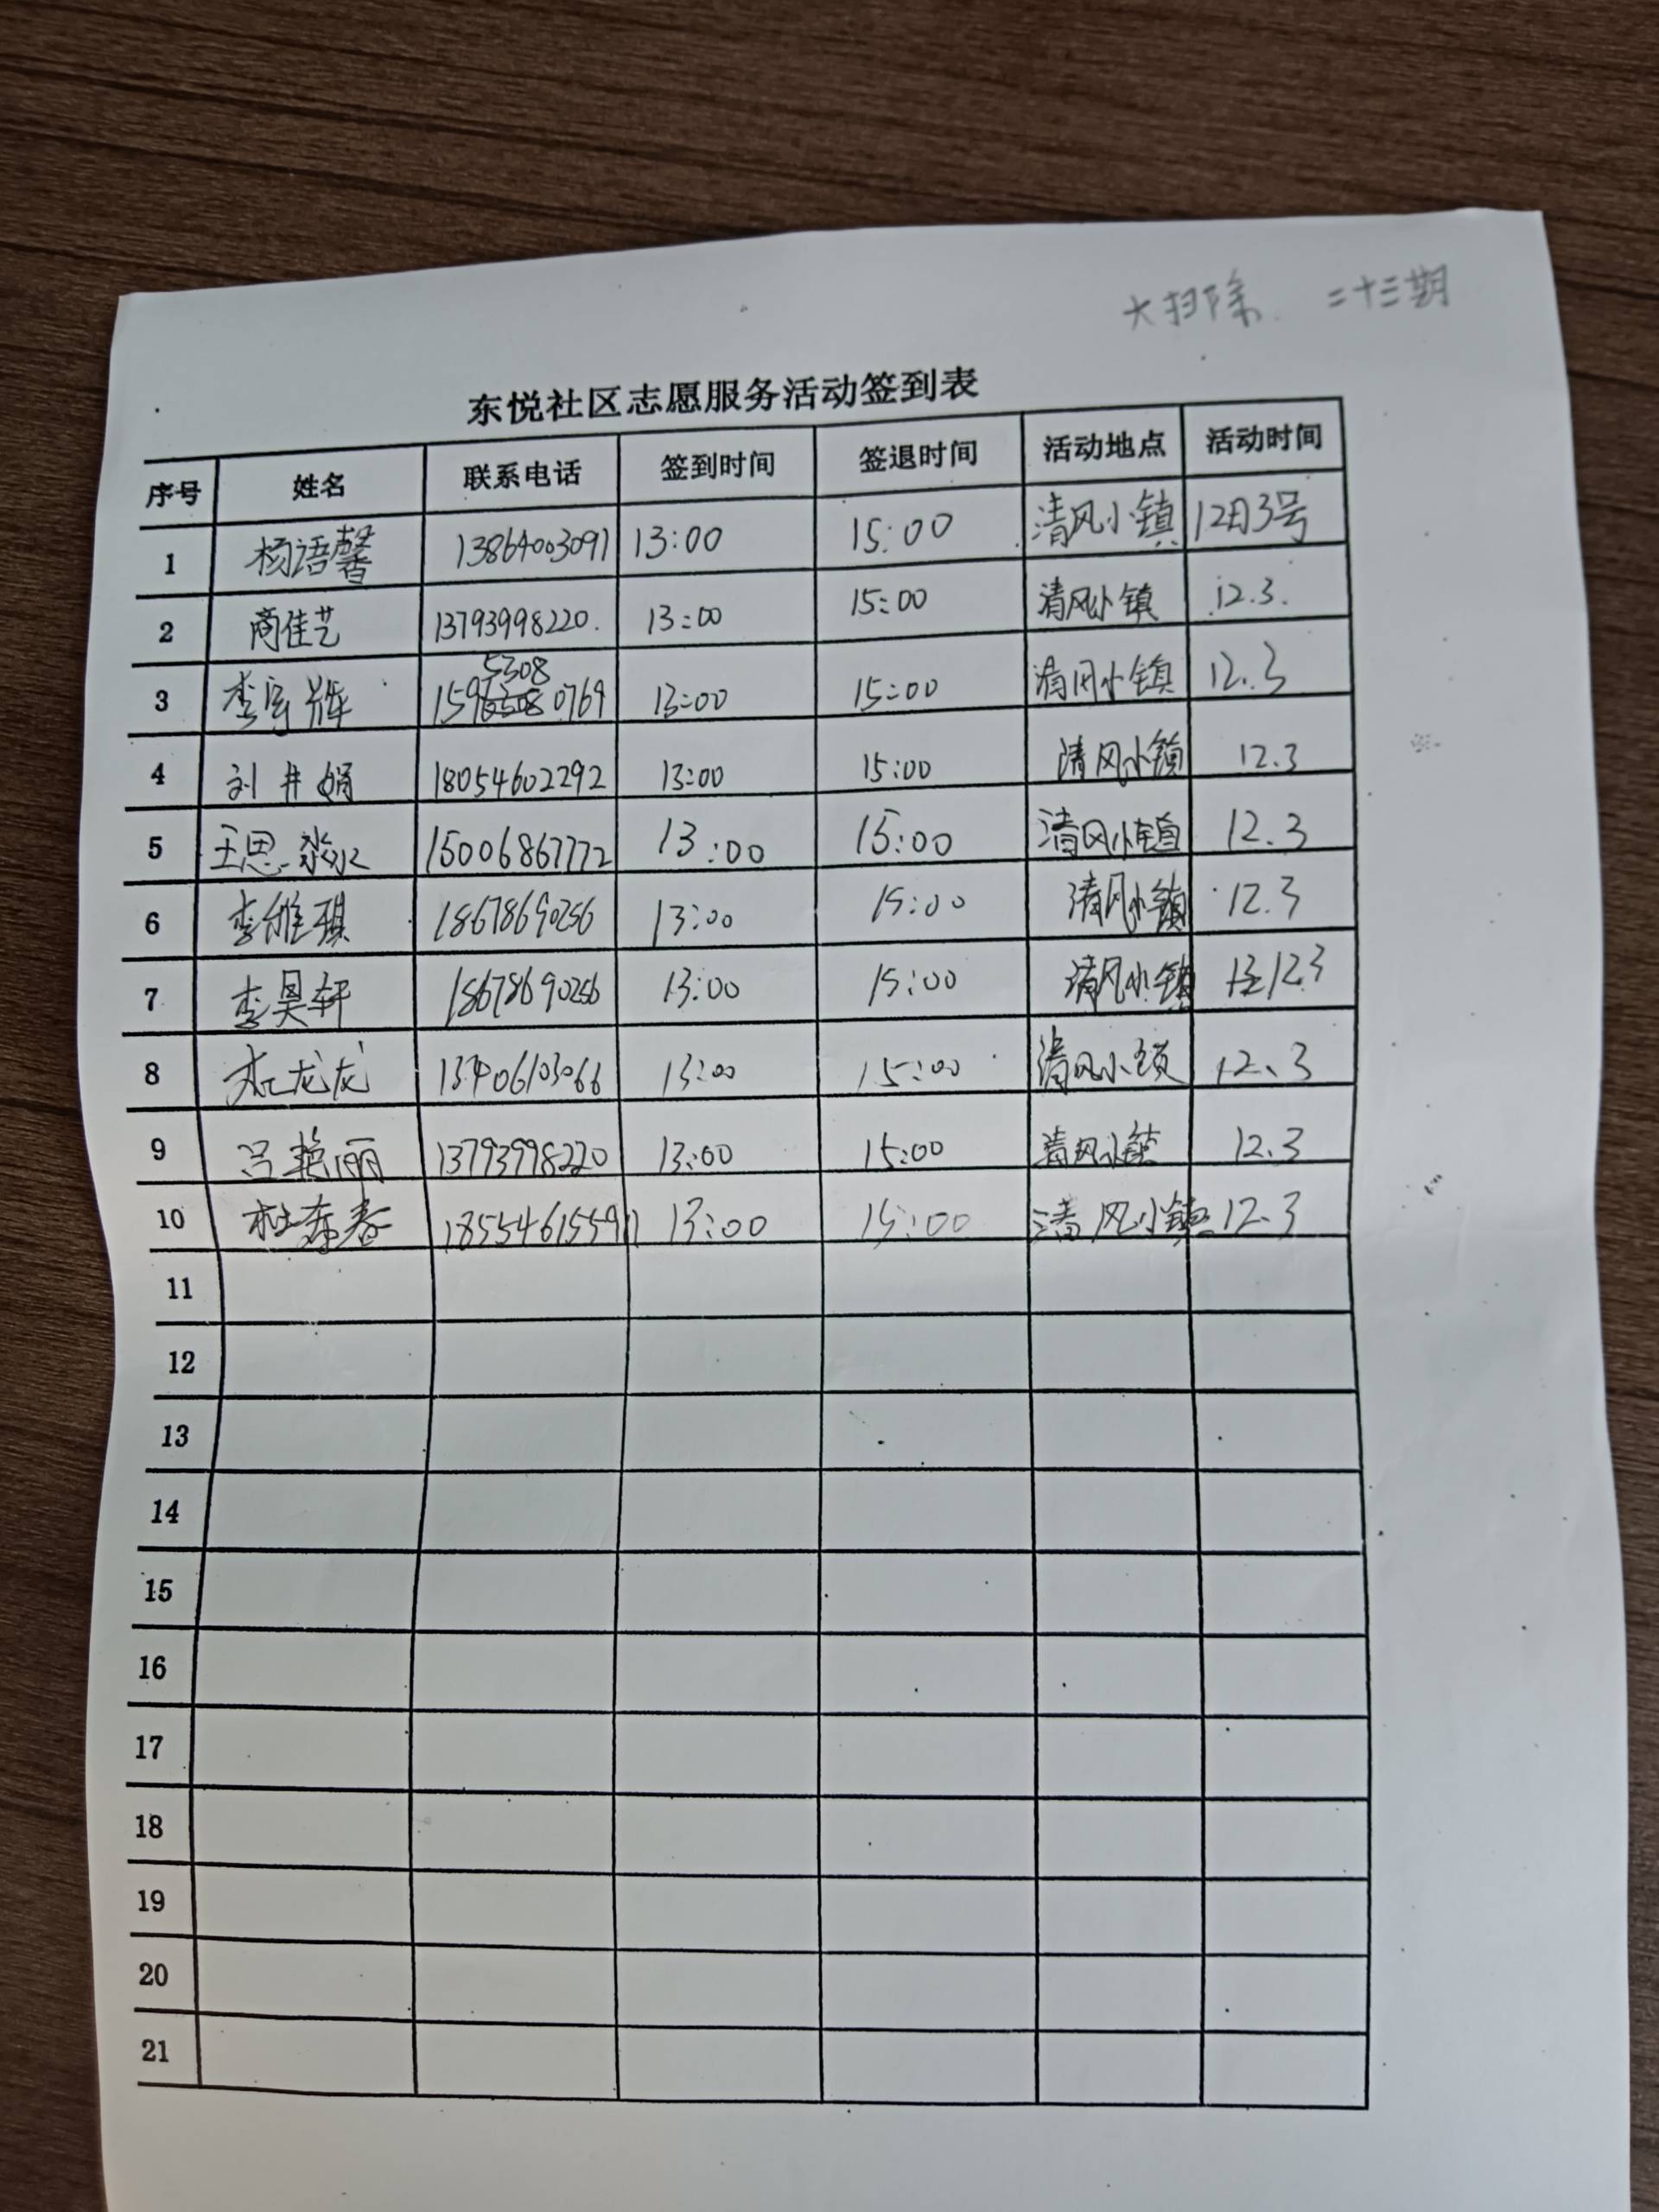 大扫除 二十三期
东悦社区志愿服务活动签到表
序号 姓名 联系电话 签到时间 签退时间 活动地点 活动时间
1 杨语馨 13864003091 13:00 15:00 清风小镇 12月3号
2 商佳艺 13793998220. 13:00 15:00 清风小镇 12.3.
5308
3 李 159 0769 13:00 15:00 清风小镇 12.3
4 刘井娟 18054602292 13:00 15:00 清风小镇 12.3
5 王思淼 15006867772 13:00 15:00 清风小镇 12.3
6 李维琪 18678690256 13:00 15:00 清风小镇 12.3
7 李昊轩 18678690256 13:00 15:00 清风小镇 12.3
8 龙龙 13406103066 13:00 15:00 清风小镇 12.3
9 吕艳丽 13793998220 13:00 15:00 清风小镇 12.3
10 杜春 18554615591 13:00 15:00 清风小镇 12.3
11
12
13
14
15
16
17
18
19
20
21